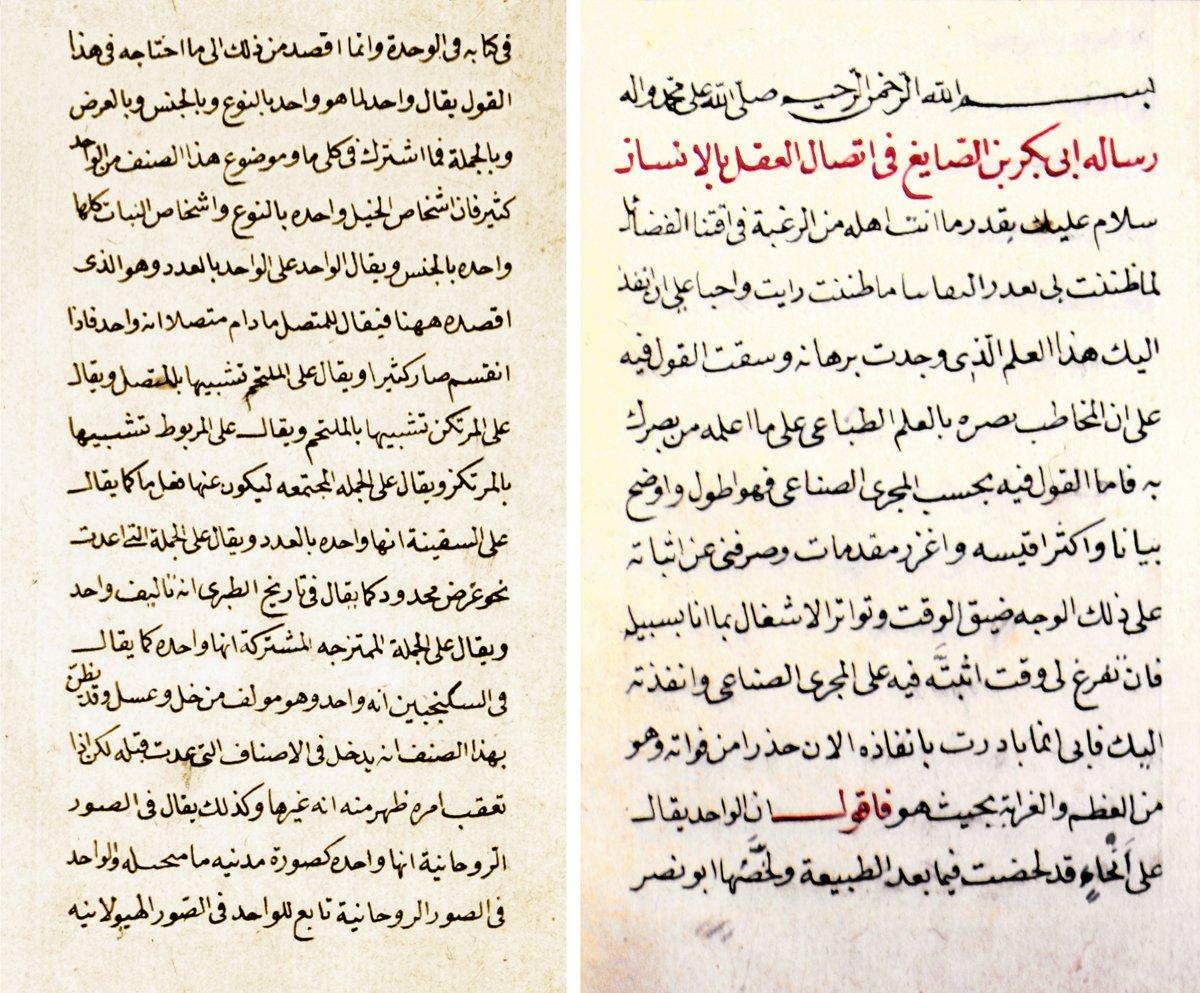 بسم الله الرحمن الرحيم صلى الله على محمد واله
رساله ابى بكر بن الصايغ فى اتصال العقل بالانسان
سلام عليك بقدر ما انت اهله من الرغبة فى اقتنا الفضائل
لما ظننت بى بعد ما ظننت رايت واجبا على ان انفذ
اليك هذا العلم الذى وجدت برهانه وسقت القول فيه
على ان المخاطب بصره بالعلم الطباعى على ما اعلمه من بصرك
به فاما القول فيه بحسب المجرى الصناعى فهو اطول واوضح
بيانا واكثر اقيسه واغزر مقدمات وصرفنى عن اثباته
على ذلك الوجه ضيق الوقت وتواتر الاشغال بما انا بسبيله
فان تفرغ لى وقت اثبته فيه على المجرى الصناعى وانفذته
اليك فانى انما بادرت بانفاذه الان حذرا من فواته وهو
من العظم والغرابة بحيث هو فاقول ان الواحد يقال
على انحاء قد لخصت فيما بعد الطبيعة ولخصها ابو نصر
فى كتابه فى الوحدة وانما اقصد من ذلك الى ما احتاجه فى هذا
القول يقال واحد لما هو واحد بالنوع وبالجنس وبالعرض
وبالجملة فما اشترك فى كلى ما وموضوع هذا الصنف من الواحد
كثير فان اشخاص الخيل واحده بالنوع واشخاص النبات كلها
واحده بالجنس ويقال الواحد على الواحد بالعدد وهو الذى
اقصده ههنا فيقال للمتصل ما دام متصلا انه واحد فاذا
انقسم صار كثيرا ويقال على الملتحم تشبيها بالمتصل ويقال
على المرتكز تشبيها بالملتحم ويقال على المربوط تشبيها
بالمرتكز ويقال على الجمله المجتمعه ليكون عنها فعل ما كما يقال
على السفينة انها واحده بالعدد ويقال على الجملة التى اعدت
نحو غرض محدود كما يقال فى تاريخ الطبرى انه تاليف واحد
ويقال على الجملة الممتزجه المشتركة انها واحده كما يقال
فى السكنجبين انه واحد وهو مولف من خل وعسل وقد يظن
بهذا الصنف انه يدخل فى الاصناف التى عدت قبله لكن اذا
تعقب امره ظهر منه انه غيرها وكذلك يقال فى الصور
الروحانية انها واحده كصورة مدنيه ما والواحد
فى الصور الروحانية تابع للواحد فى الصور الهيولانيه